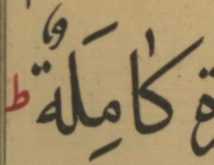 ة كٰامِلَةٌ ط